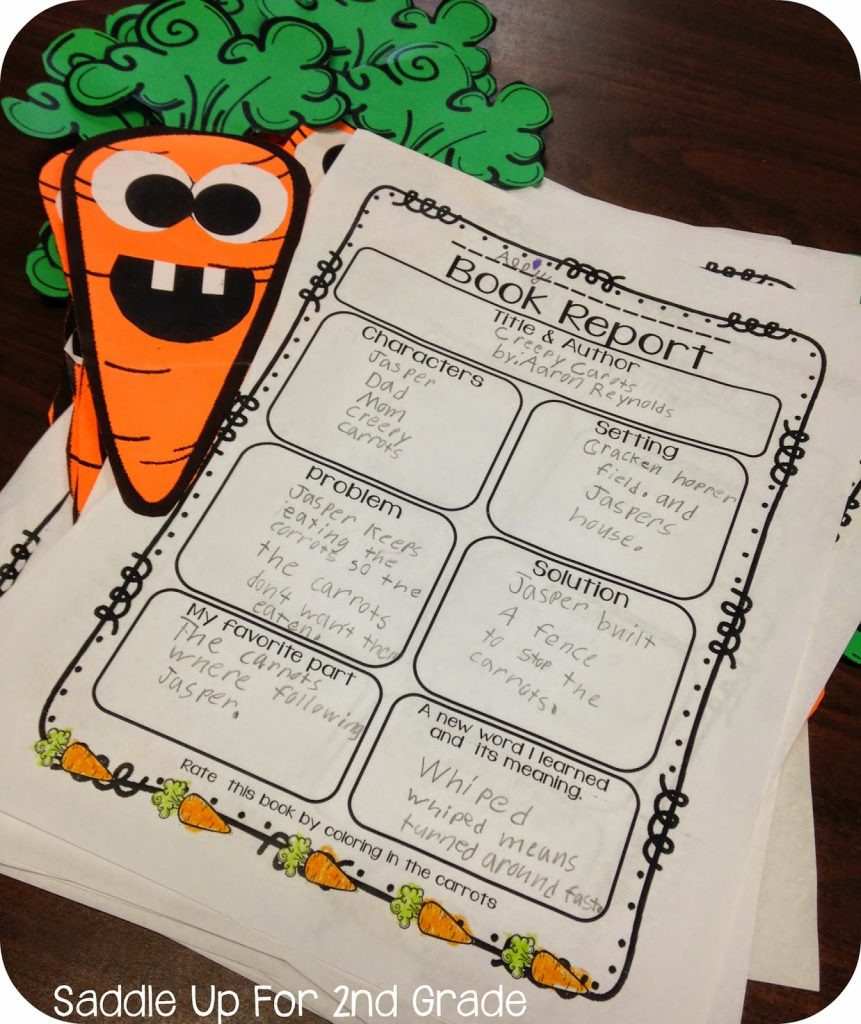 Ally
Book Report
Title & Author
Creepy Carots
by: Aaron Reynolds
Characters
Jasper
Dad
Mom
Creepy
carrots
Setting
Cracken hopper
field. and
Jaspers
house.
Problem
Jasper keeps
eating the
carrots so the
the carrots
don4 want them
eaten.
Solution
Jasper built
A fence
to stop the
carrots.
My favorite part
The carrots
where following
Jasper.
A new word I learned
and its meaning.
Whiped
whiped means
turned around fast.
Rate this book by coloring in the carrots
Saddle Up For 2nd Grade